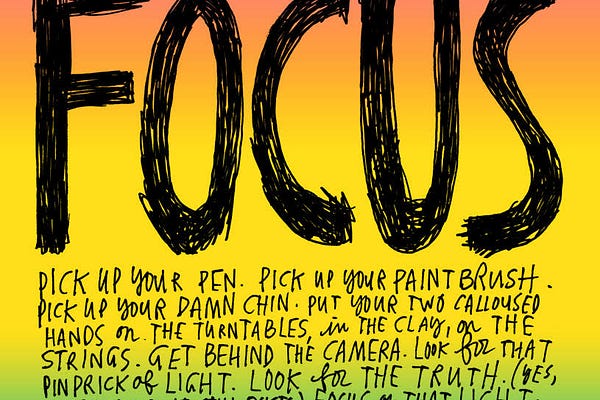 FOCUS
PICK UP YOUR PEN. PICK UP YOUR PAINTBRUSH.
PICK UP YOUR DAMN CHIN. PUT YOUR TWO CALLOUSED
HANDS on THE TURNTABLES, in THE CLAY, on THE
STRINGS. GET BEHIND THE CAMERA. LOOK for THAT
PINPRICK of LIGHT. LOOK for THE TRUTH. (YES,
FOCUS on THAT LIGHT.